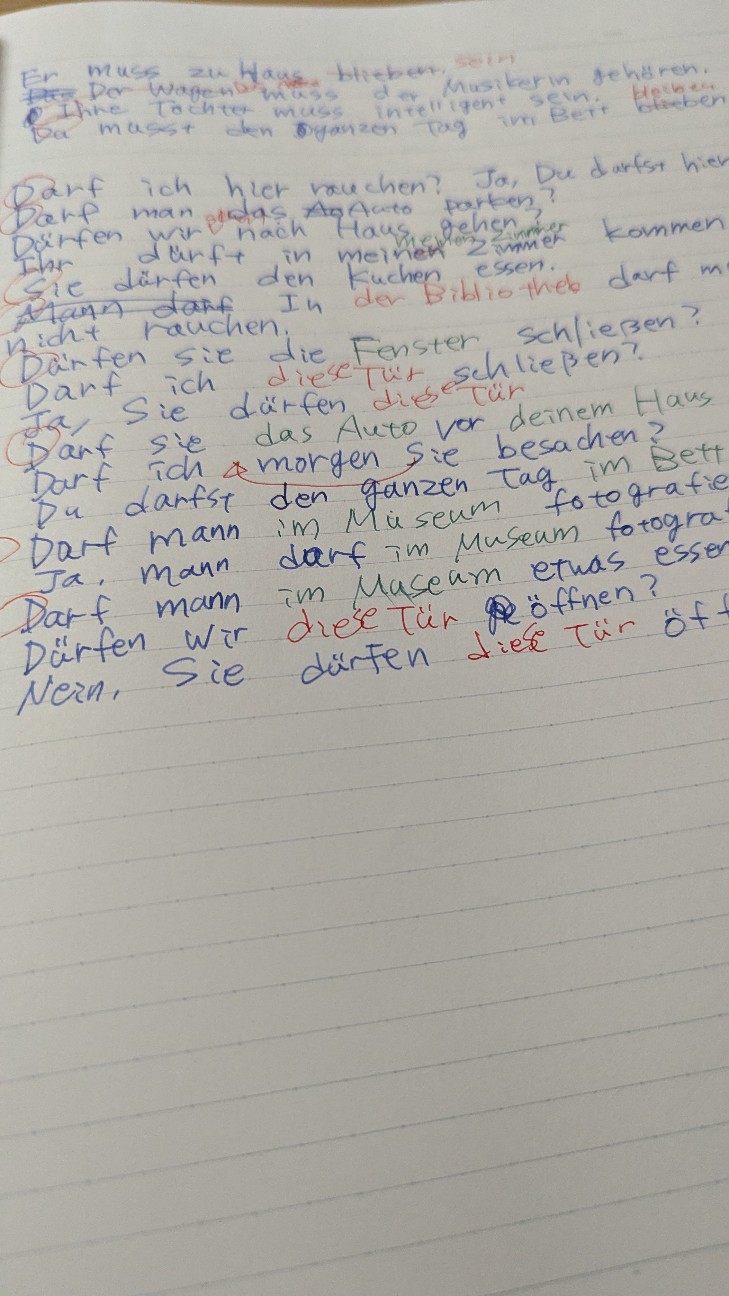 Er muss zu Haus blieben. sein
Der Wagen muss der Musikerin gehören.
Ihre Tochter muss intelligent sein.
Du musst den ganzen Tag im Bett blieben
Darf ich hier rauchen? Ja, Du darfst hier
Darf man das Auto parken?
Dürfen wir nach Haus gehen?
Ihr dürft in meinen Zimmer kommen
Sie dürfen den Kuchen essen.
Mann darf In der Bibliotheb darf m
nicht rauchen.
Dürfen sie die Fenster schließen?
Darf ich diese Tür schließen?
Ja, Sie dürfen diese Tür
Darf sie das Auto vor deinem Haus
Darf ich morgen Sie besachen?
Du darfst den ganzen Tag im Bett
Darf mann im Museum fotografie
Ja, mann darf im Museum fotogra
Darf mann im Museum etwas essen
Dürfen wir diese Tür öffnen?
Nein, Sie dürfen diese Tür öff